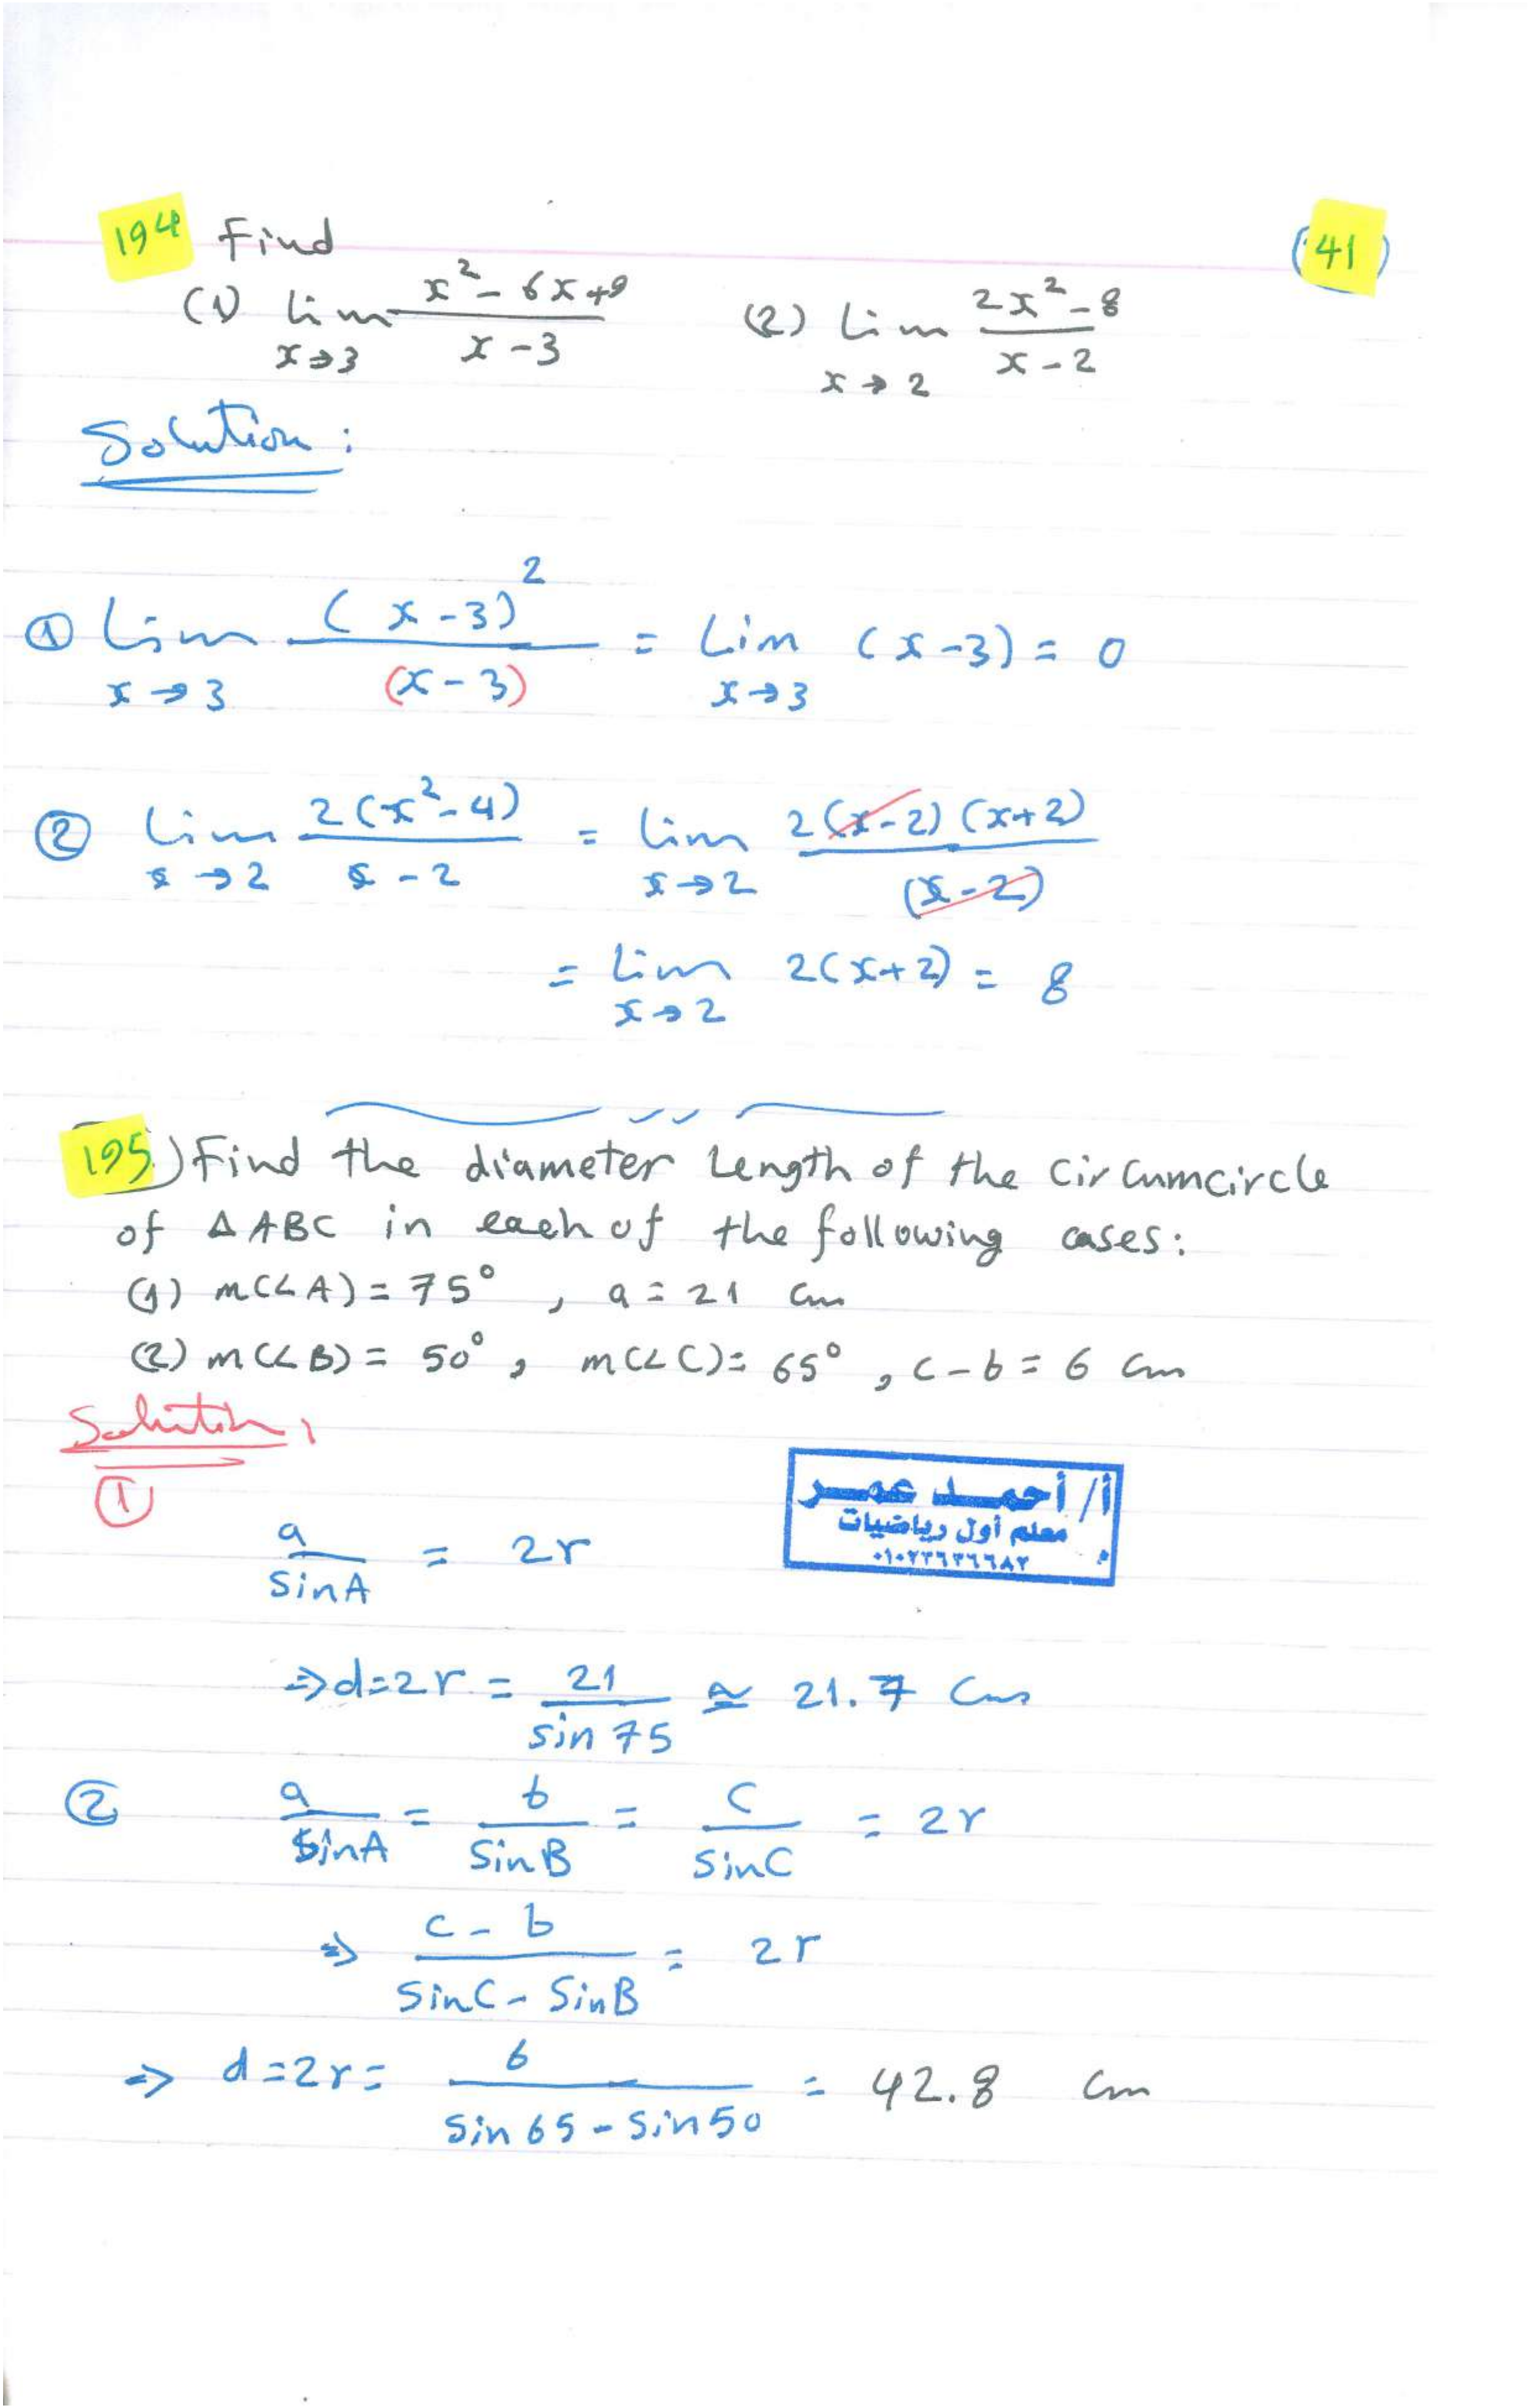 194 Find (41)
(1) lim x→3 (x² - 6x + 9)/(x - 3) (2) Lim x→2 (2x² - 8)/(x - 2)
Solution:
① Lim x→3 (x-3)²/(x-3) = Lim x→3 (x-3) = 0
② Lim x→2 2(x²-4)/(x-2) = lim x→2 2(x-2)(x+2)/(x-2)
= Lim x→2 2(x+2) = 8
195) Find the diameter Length of the Circumcircle
of △ABC in each of the following cases:
(1) m(∠A) = 75°, a = 21 cm
(2) m(∠B) = 50°, m(∠C) = 65°, c - b = 6 cm
Solution:
①
أ/ أحمد عمر
معلم أول رياضيات
a/SinA = 2r
⇒ d = 2r = 21/sin 75 ≃ 21.7 Cm
② a/SinA = b/SinB = c/SinC = 2r
⇒ (c - b)/(SinC - SinB) = 2r
⇒ d = 2r = 6/(Sin 65 - Sin 50) = 42.8 cm